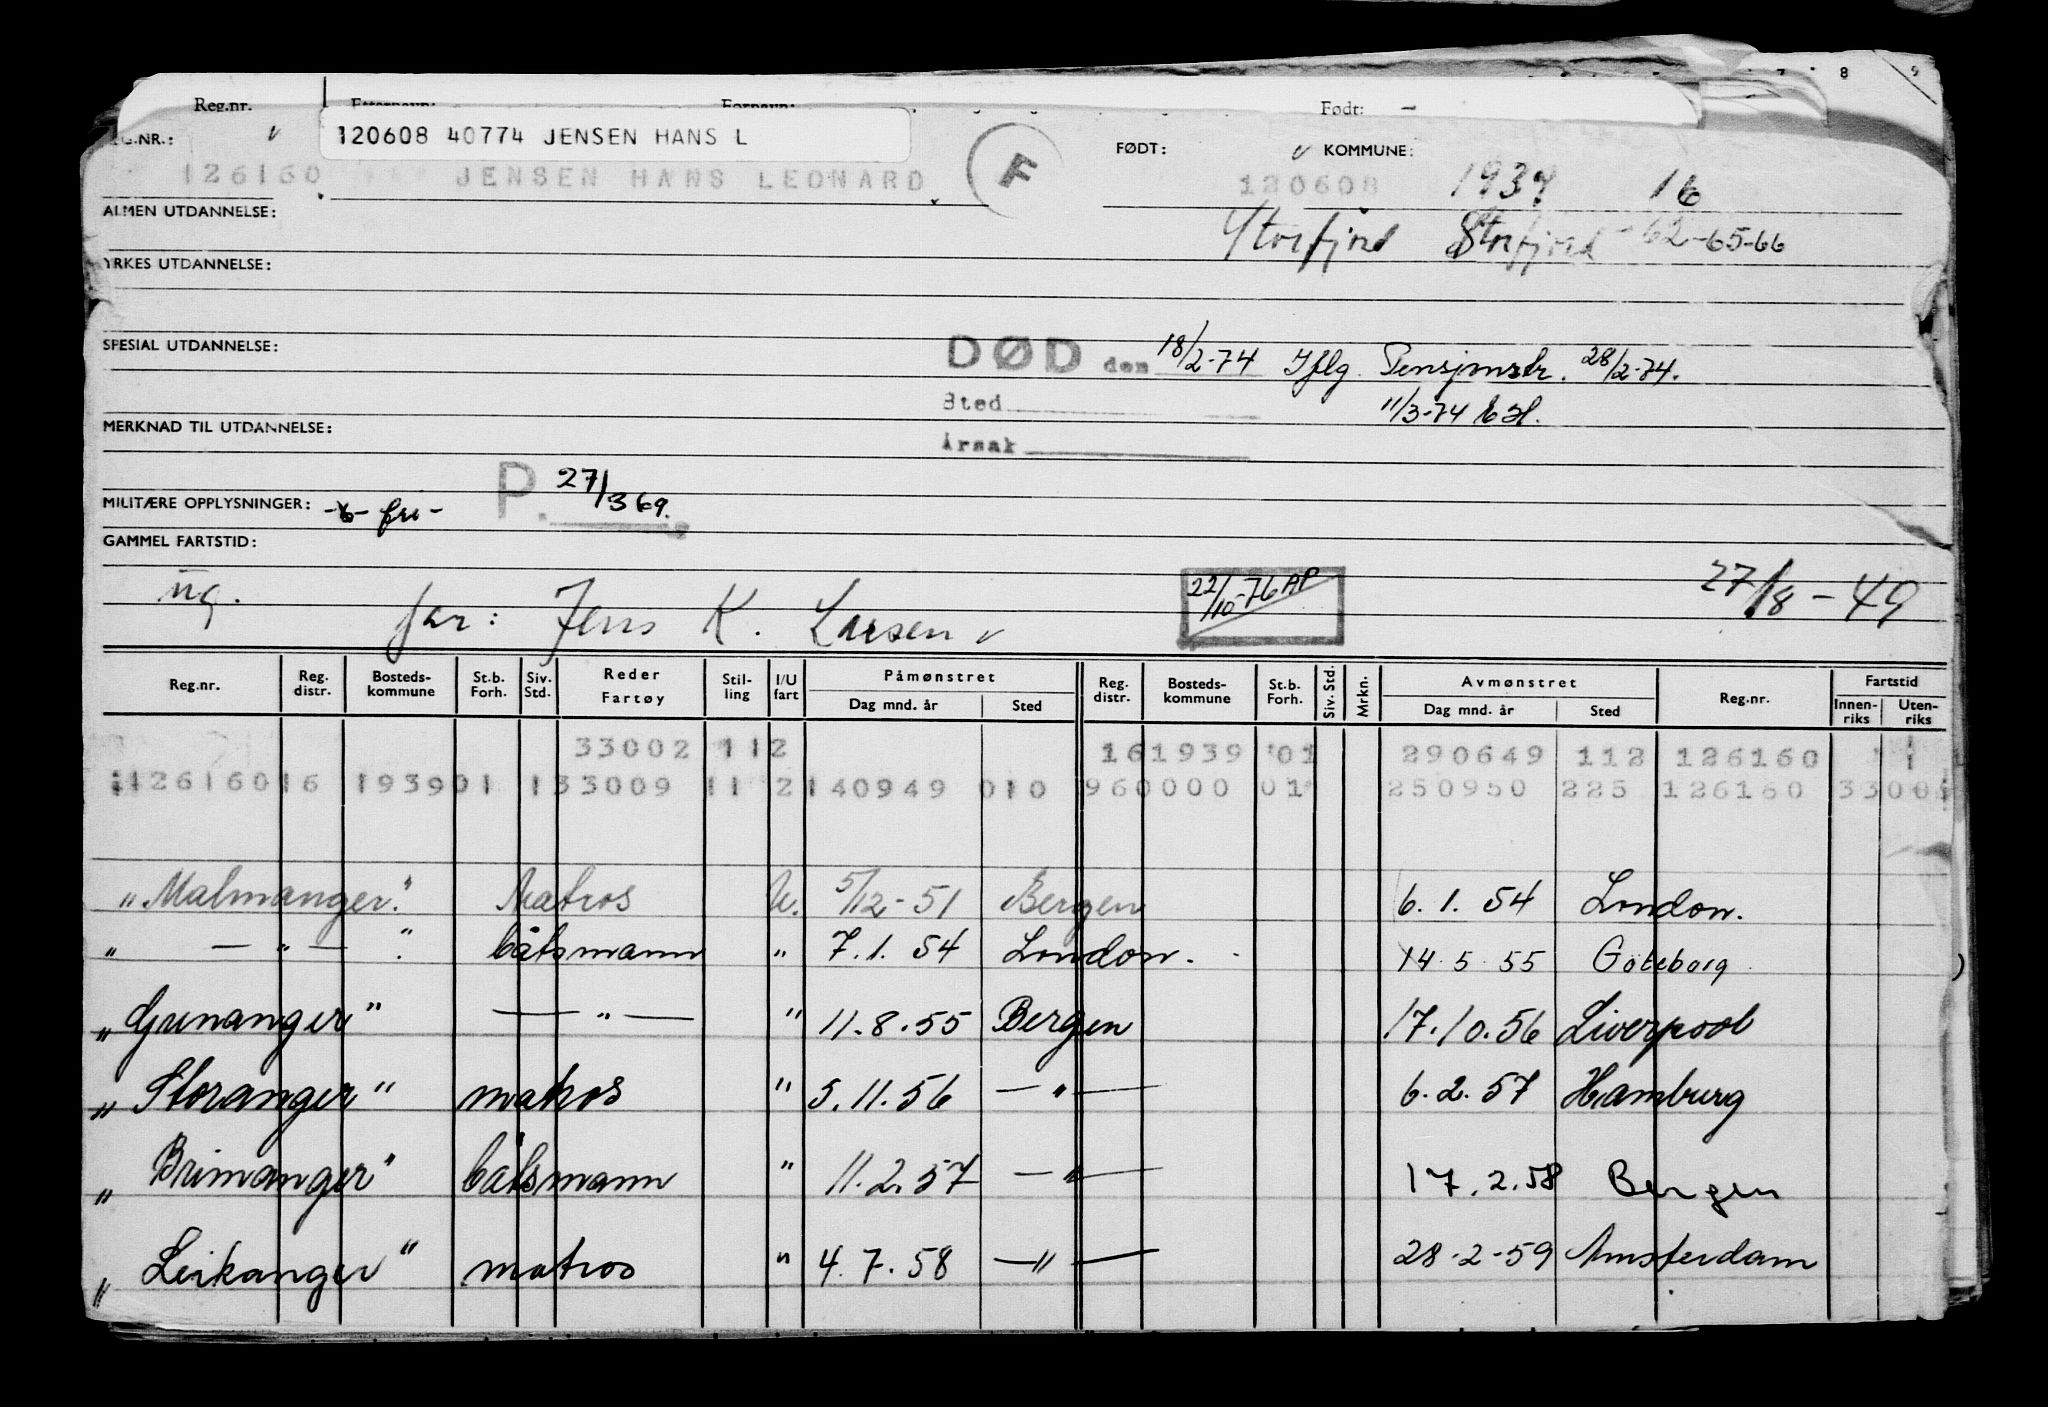 7 8 9
Reg.nr. Etternavn: Fornavn: Født: –
REG.NR.: v 120608 40774 JENSEN HANS L F FØDT: v KOMMUNE:
126160 JENSEN HANS LEONARD 120608 1939 16
ALMEN UTDANNELSE: Storfjord Storfjord -62-65-66
YRKES UTDANNELSE:
SPESIAL UTDANNELSE: DØD den 18/2-74 Iflg. Pensjonstr. 28/2-74.
Sted 11/3-74 EH.
MERKNAD TIL UTDANNELSE: Årsak
MILITÆRE OPPLYSNINGER: fri- P. 27/3 69.
GAMMEL FARTSTID:
ug. far: Jens K. Larsen v 22/10-76 AP 27/8-49
Reg.nr. Reg. distr. Bosteds-kommune St.b. Forh. Siv. Std. Reder Fartøy Stil-ling I/U fart Påmønstret Dag mnd. år Sted Reg. distr. Bosteds-kommune St.b. Forh. Siv. Std. Mrkn. Avmønstret Dag mnd. år Sted Reg.nr. Fartstid Innen-riks Uten-riks
33002 112 161939 01 290649 112 126160
126160 16 1939 01 1 33009 11 2 140949 010 960000 01 250950 225 126160 3300
"Malmanger" Matros U. 5/12-51 Bergen 6.1.54 London.
" — " — " båtsmann " 7.1.54 London. 14.5.55 Göteborg
"Grenanger" — " — " 11.8.55 Bergen 17.10.56 Liverpool
"Storanger" matros " 5.11.56 — " — 6.2.57 Hamburg
"Brimanger" båtsmann " 11.2.57 — " — 17.2.58 Bergen
"Leikanger" matros " 4.7.58 — " — 28-2-59 Amsterdam